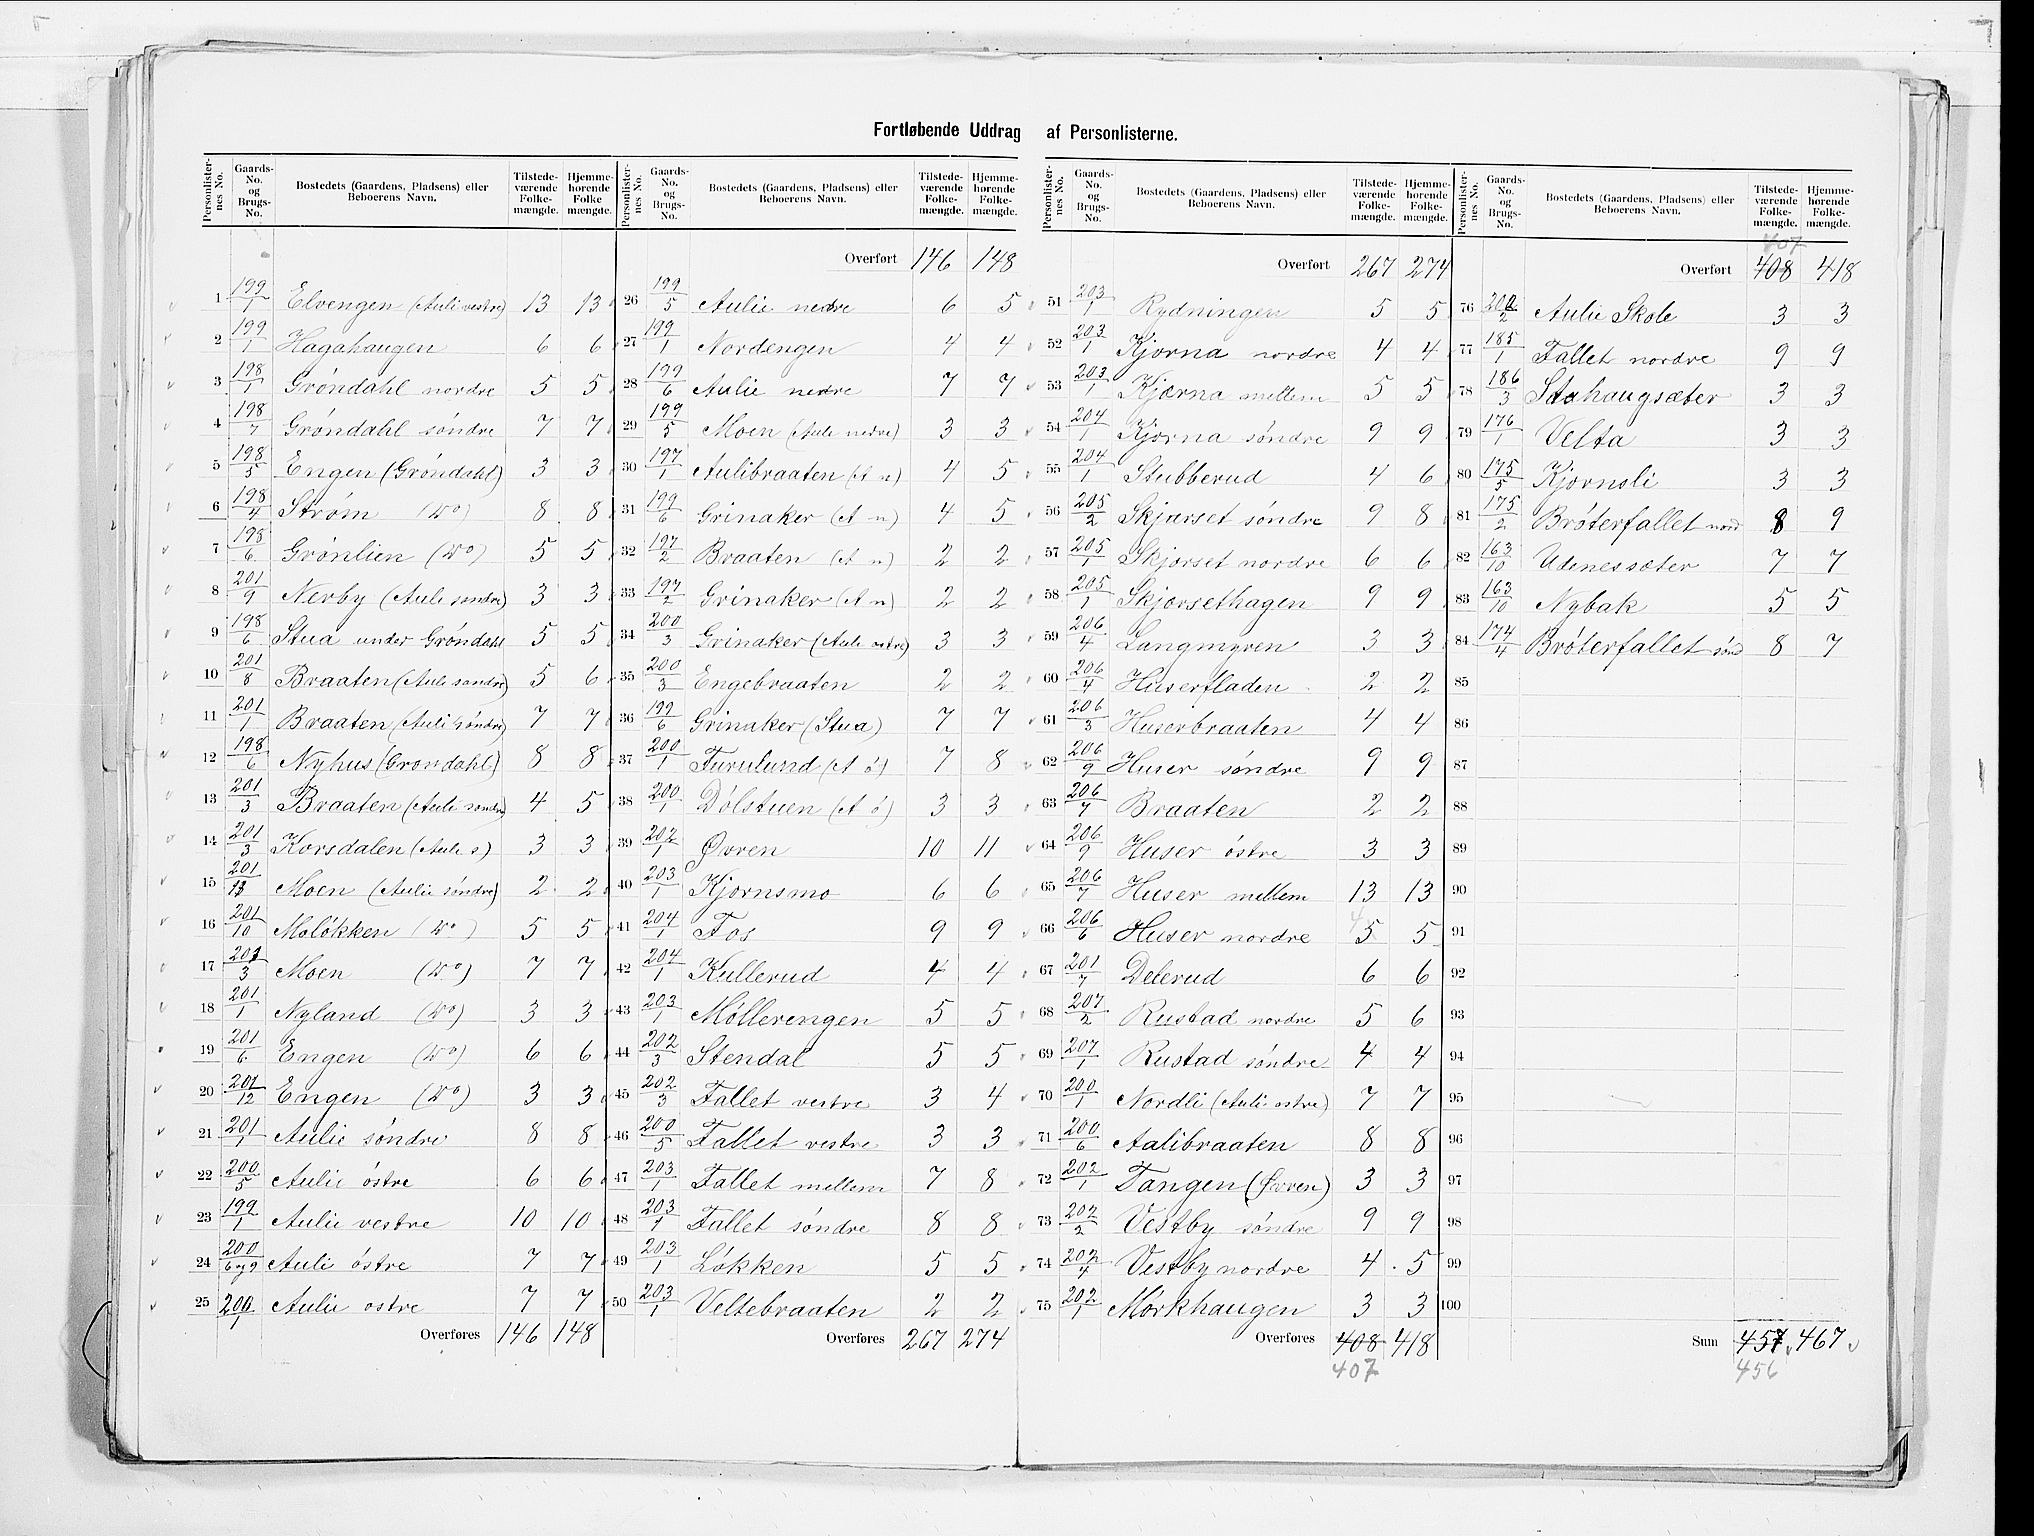 Fortløbende Uddrag af Personlisterne.
Personlisternes No. Gaards-No. og Brugs-No. Bostedets (Gaardens, Pladsens) eller Beboerens Navn. Tilstedeværende Folkemængde. Hjemmehørende Folkemængde.
1 199/1 Elvengen (Auli vestre) 13 13
2 199/1 Hagahaugen 6 6
3 198/1 Grøndahl nordre 5 5
4 198/7 Grøndahl søndre 7 7
5 198/5 Engen (Grøndahl) 3 3
6 198/4 Strøm (Do) 8 8
7 198/6 Grønlien (Do) 5 5
8 201/9 Nerby (Auli søndre) 3 3
9 198/6 Stua under Grøndahl 5 5
10 201/8 Braaten (Auli søndre) 5 6
11 201/1 Braaten (Auli søndre) 7 7
12 198/6 Nyhus (Grøndahl) 8 8
13 201/3 Braaten (Auli søndre) 4 5
14 201/3 Korsdalen (Auli s) 3 3
15 201/13 Moen (Aulie søndre) 2 2
16 201/10 Moløkken (Do) 5 5
17 201/3 Moen (Do) 7 7
18 201/1 Nyland (Do) 3 3
19 201/6 Engen (Do) 6 6
20 201/12 Engen (Do) 3 3
21 201/1 Aulie søndre 8 8
22 200/5 Aulie østre 6 6
23 199/1 Aulie vestre 10 10
24 200/6 og 9 Auli østre 7 7
25 200/1 Aulie østre 7 7
Overføres 146 148
Personlisternes No. Gaards-No. og Brugs-No. Bostedets (Gaardens, Pladsens) eller Beboerens Navn. Tilstedeværende Folkemængde. Hjemmehørende Folkemængde.
Overført 146 148
26 199/5 Aulie nedre 6 5
27 199/1 Nordengen 4 4
28 199/6 Aulie nedre 7 7
29 199/5 Moen (Auli nedre) 3 3
30 197/1 Aulibraaten (A n) 4 5
31 199/6 Grinaker (A n) 4 5
32 197/2 Braaten (A n) 2 2
33 197/2 Grinaker (A n) 2 2
34 200/3 Grinaker (Auli østre) 3 3
35 200/3 Engebraaten 2 2
36 199/6 Grinaker (Stua) 7 7
37 200/1 Furulund (A ø) 7 8
38 200/1 Dølstuen (A ø) 3 3
39 202/1 Øvren 10 11
40 203/1 Kjørnsmo 6 6
41 204/1 Fos 9 9
42 204/1 Kullerud 4 4
43 203/1 Møllerengen 5 5
44 202/3 Stendal 5 5
45 202/3 Fallet vestre 3 4
46 200/5 Fallet vestre 3 3
47 203/1 Fallet mellem 7 8
48 203/1 Fallet søndre 8 8
49 203/1 Løkken 5 5
50 203/1 Veltebraaten 2 2
Overføres 267 274
Personlisternes No. Gaards-No. og Brugs-No. Bostedets (Gaardens, Pladsens) eller Beboerens Navn. Tilstedeværende Folkemængde. Hjemmehørende Folkemængde.
Overført 267 274
51 203/1 Rydningen 5 5
52 203/1 Kjørna nordre 4 4
53 203/1 Kjærna mellem 5 5
54 204/1 Kjørna søndre 9 9
55 204/1 Stubberud 4 6
56 205/2 Skjørset søndre 9 8
57 205/1 Skjørset nordre 6 6
58 205/1 Skjørsethagen 9 9
59 206/4 Langmyren 3 3
60 206/4 Huserfladen 2 2
61 206/3 Huserbraaten 4 4
62 206/9 Huser søndre 9 9
63 206/7 Braaten 2 2
64 206/9 Huser østre 3 3
65 206/7 Huser mellem 13 13
66 206/6 Huser nordre 4 5 5
67 201/7 Delerud 6 6
68 207/2 Rustad nordre 5 6
69 207/1 Rustad søndre 4 4
70 200/1 Nordli (Auli østre) 7 7
71 200/6 Aalibraaten 8 8
72 202/1 Tangen (Øvren) 3 3
73 202/2 Vestby søndre 9 9
74 202/4 Vestby nordre 4 5
75 202/1 Mørkhaugen 3 3
Overføres 408 418
407
Personlisternes No. Gaards-No. og Brugs-No. Bostedets (Gaardens, Pladsens) eller Beboerens Navn. Tilstedeværende Folkemængde. Hjemmehørende Folkemængde.
407
Overført 408 418
76 202/2 Aulie Skole 3 3
77 185/1 Fallet nordre 9 9
78 186/3 Stahaugsæter 3 3
79 176/1 Velta 3 3
80 175/5 Kjørnsli 3 3
81 175/2 Brøterfallet nord 8 9
82 163/10 Udenessæter 7 7
83 163/10 Nybak 5 5
84 174/4 Brøterfallet sønd 8 7
85
86
87
88
89
90
91
92
93
94
95
96
97
98
99
100
Sum 457 467
456